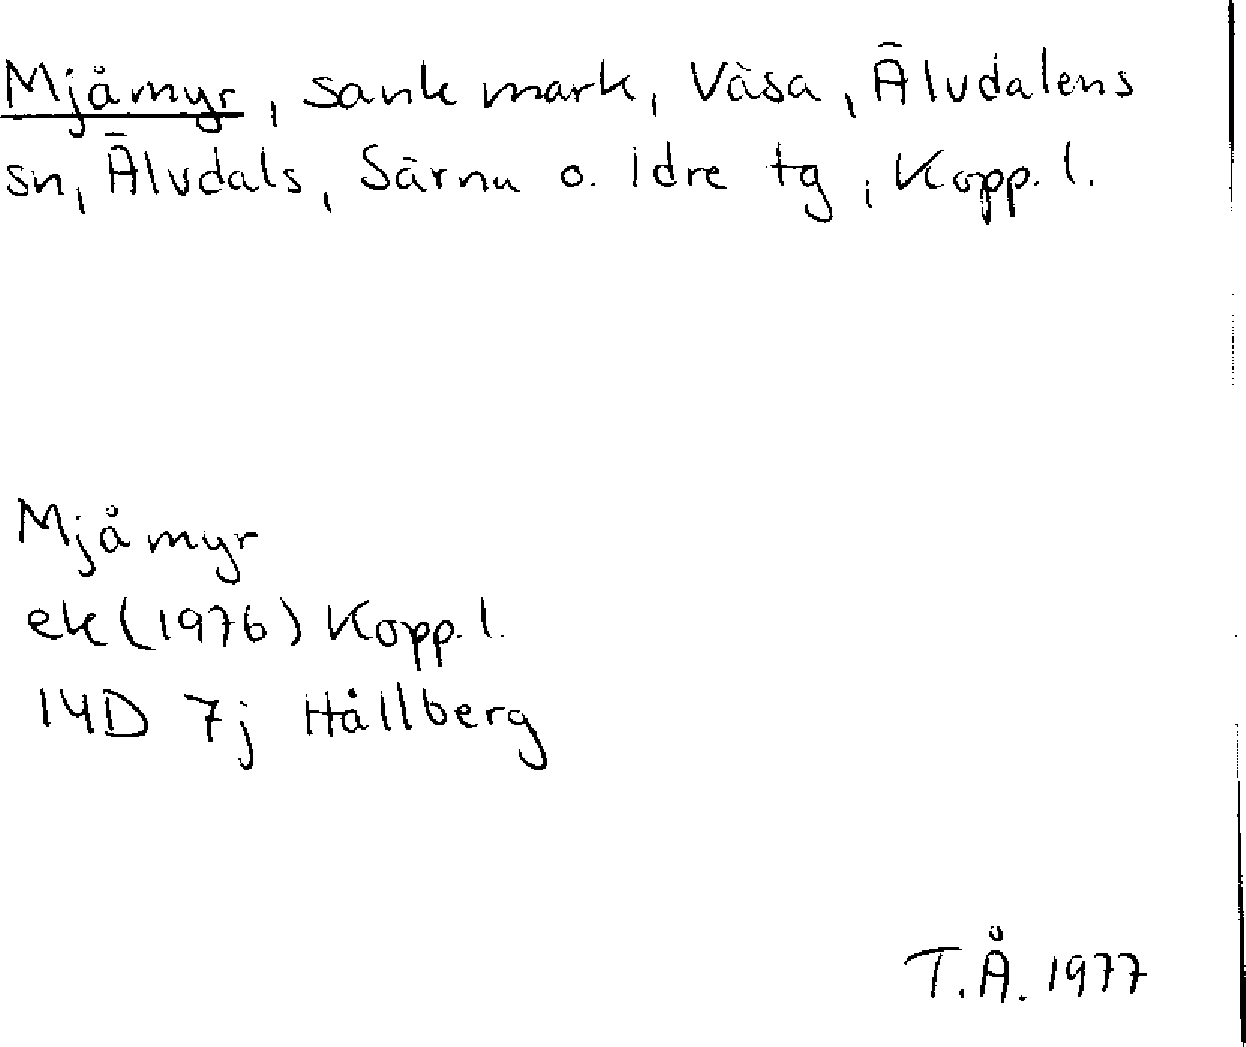 Mjåmyr, sank mark, Våsa, Älvdalens
sn, Älvdals, Särna o. Idre tg, Kopp. l.
Mjåmyr
ek (1976) Kopp. l.
14D 7j Hållberg
T.Å. 1977